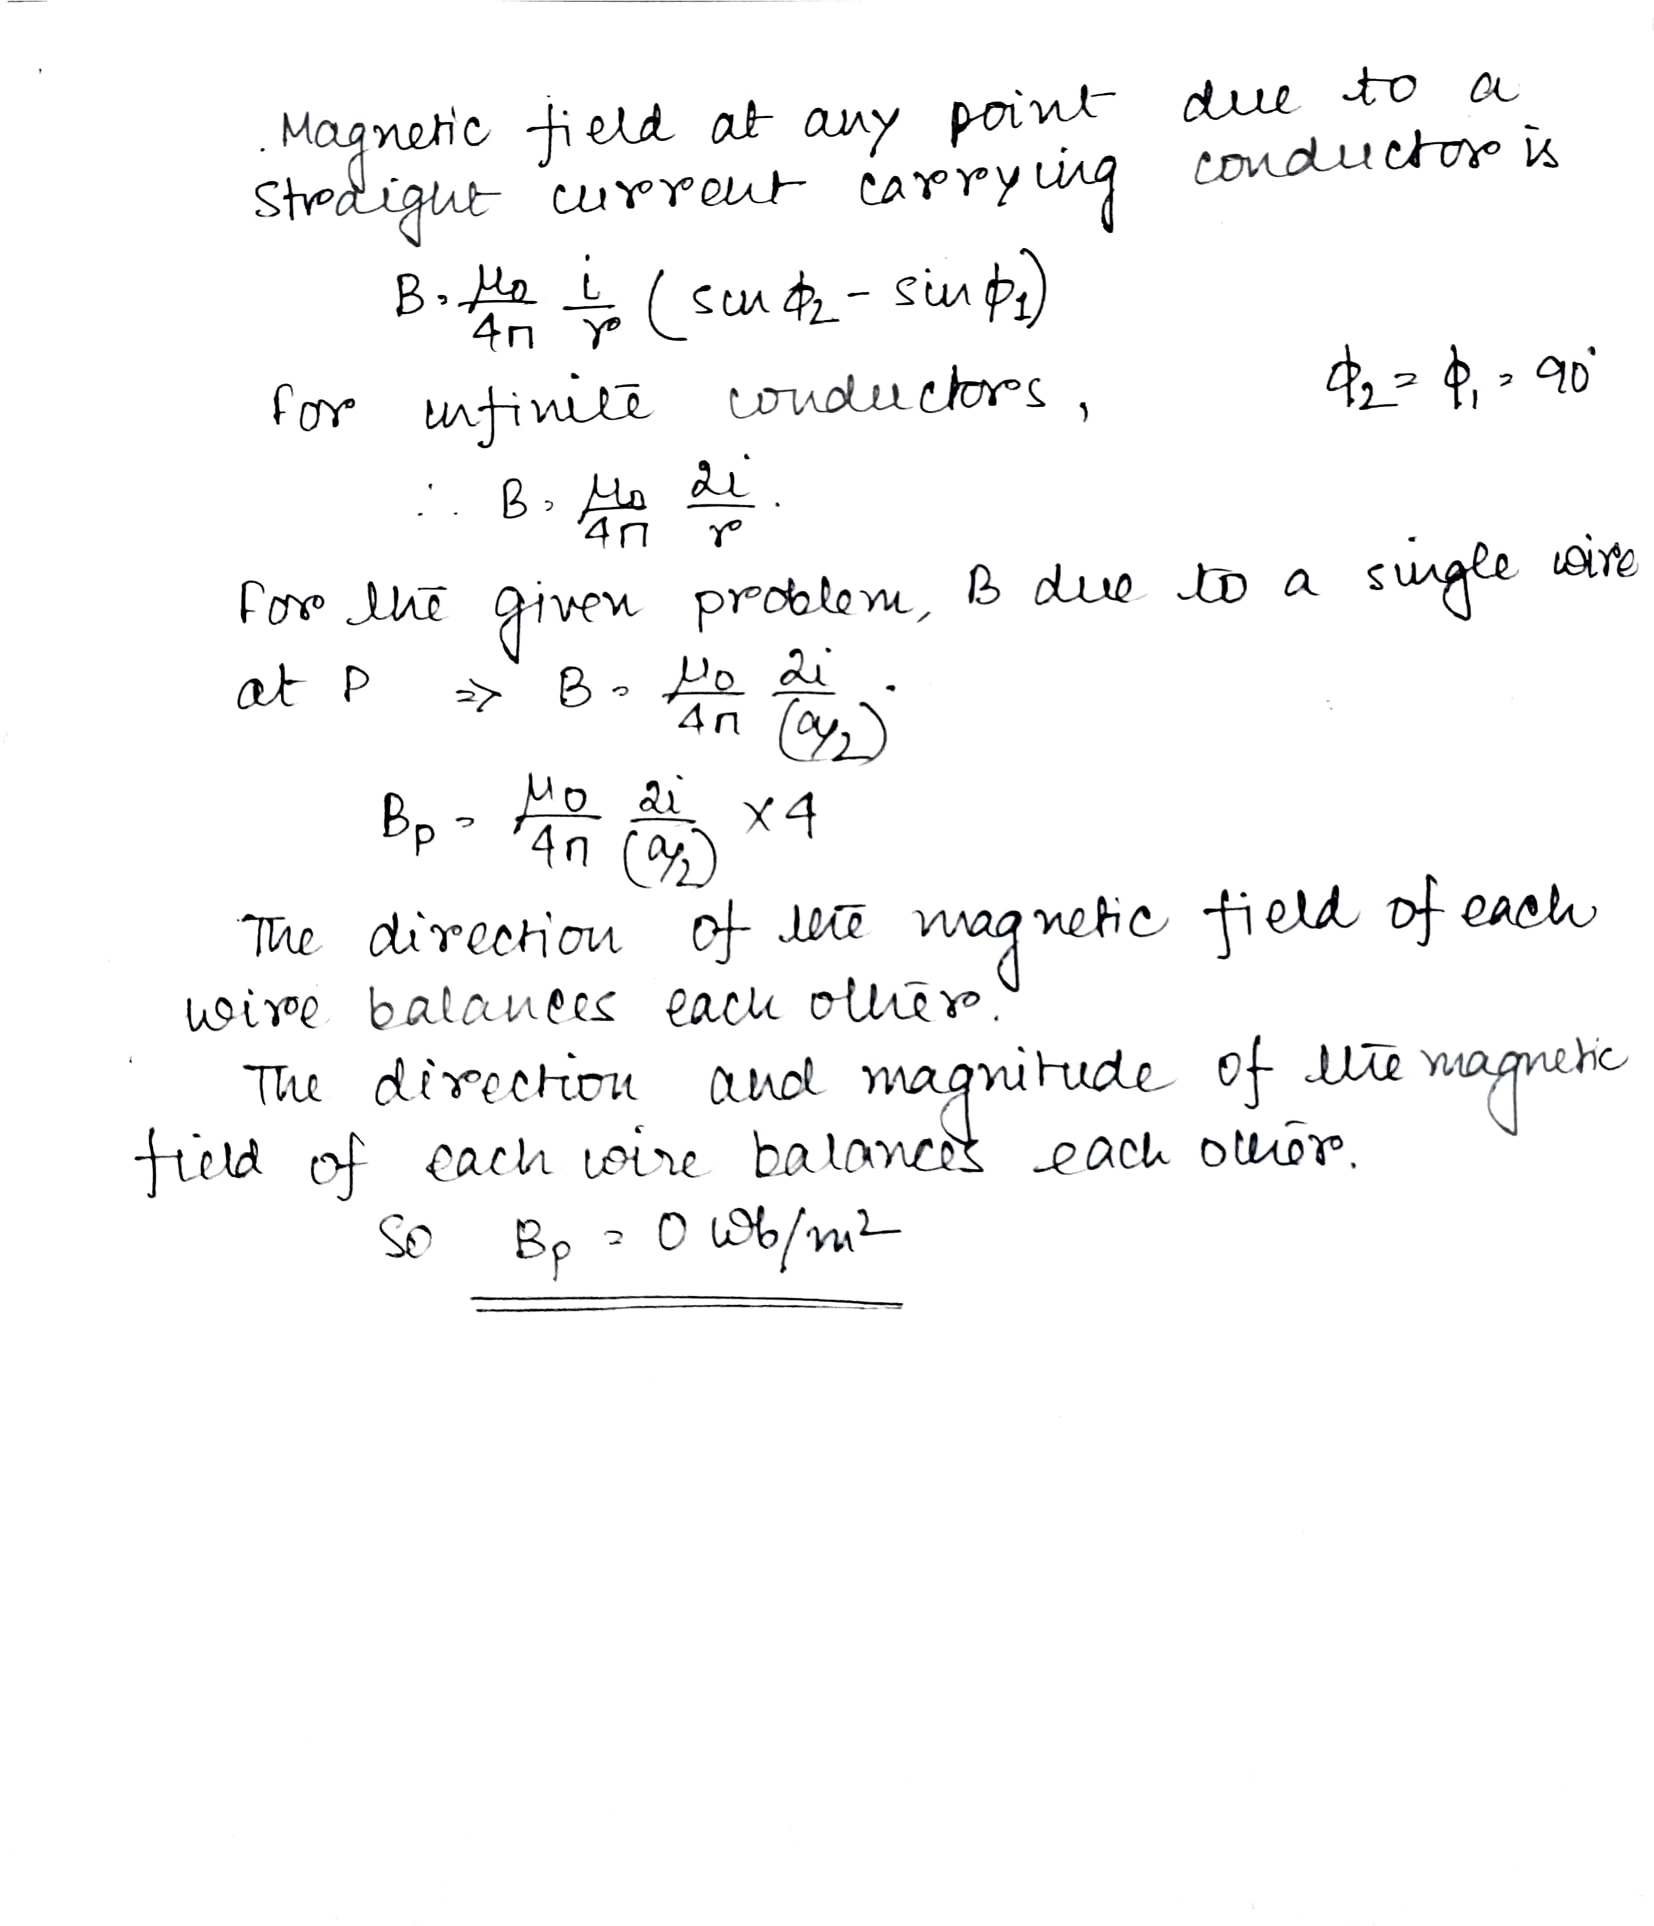 Magnetic field at any point due to a
straight current carrying conductor is
B = μ₀/4π i/r (sin ϕ₂ - sin ϕ₁)
for infinite conductors, ϕ₂ = ϕ₁ = 90°
∴ B = μ₀/4π 2i/r.
for the given problem, B due to a single wire
at P ⇒ B = μ₀/4π 2i/(a/2).
Bp = μ₀/4π 2i/(a/2) × 4
The direction of the magnetic field of each
wire balances each other.
The direction and magnitude of the magnetic
field of each wire balances each other.
So Bp = 0 Wb/m²